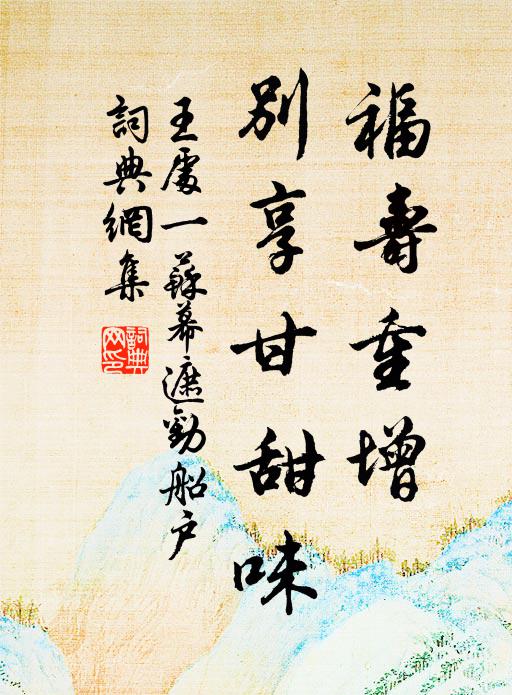 福壽重增
別享甘甜味
王處一蘇幕遮勸船户
詞典網集
詞典網印